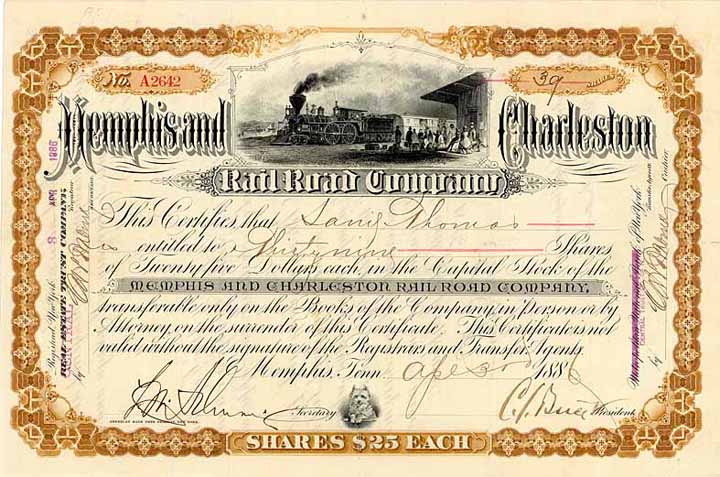 No. A2642
39 Shares
Memphis and Charleston
Rail Road Company
This Certifies that Samˡ Thomas
is entitled to Thirty nine Shares
of Twenty five Dollars each, in the Capital Stock of the
MEMPHIS AND CHARLESTON RAIL ROAD COMPANY,
transferable only on the Books of the Company, in person or by
Attorney, on the surrender of this Certificate. This Certificate is not
valid without the signature of the Registrars and Transfer Agents.
Memphis, Tenn. Apl 3rd 1886
Secretary
President
AMERICAN BANK NOTE COMPANY, NEW YORK.
SHARES $25 EACH
Registered, New York
APR 1886
by
Registrar
of New York
Transfer Agents
by
Cashier